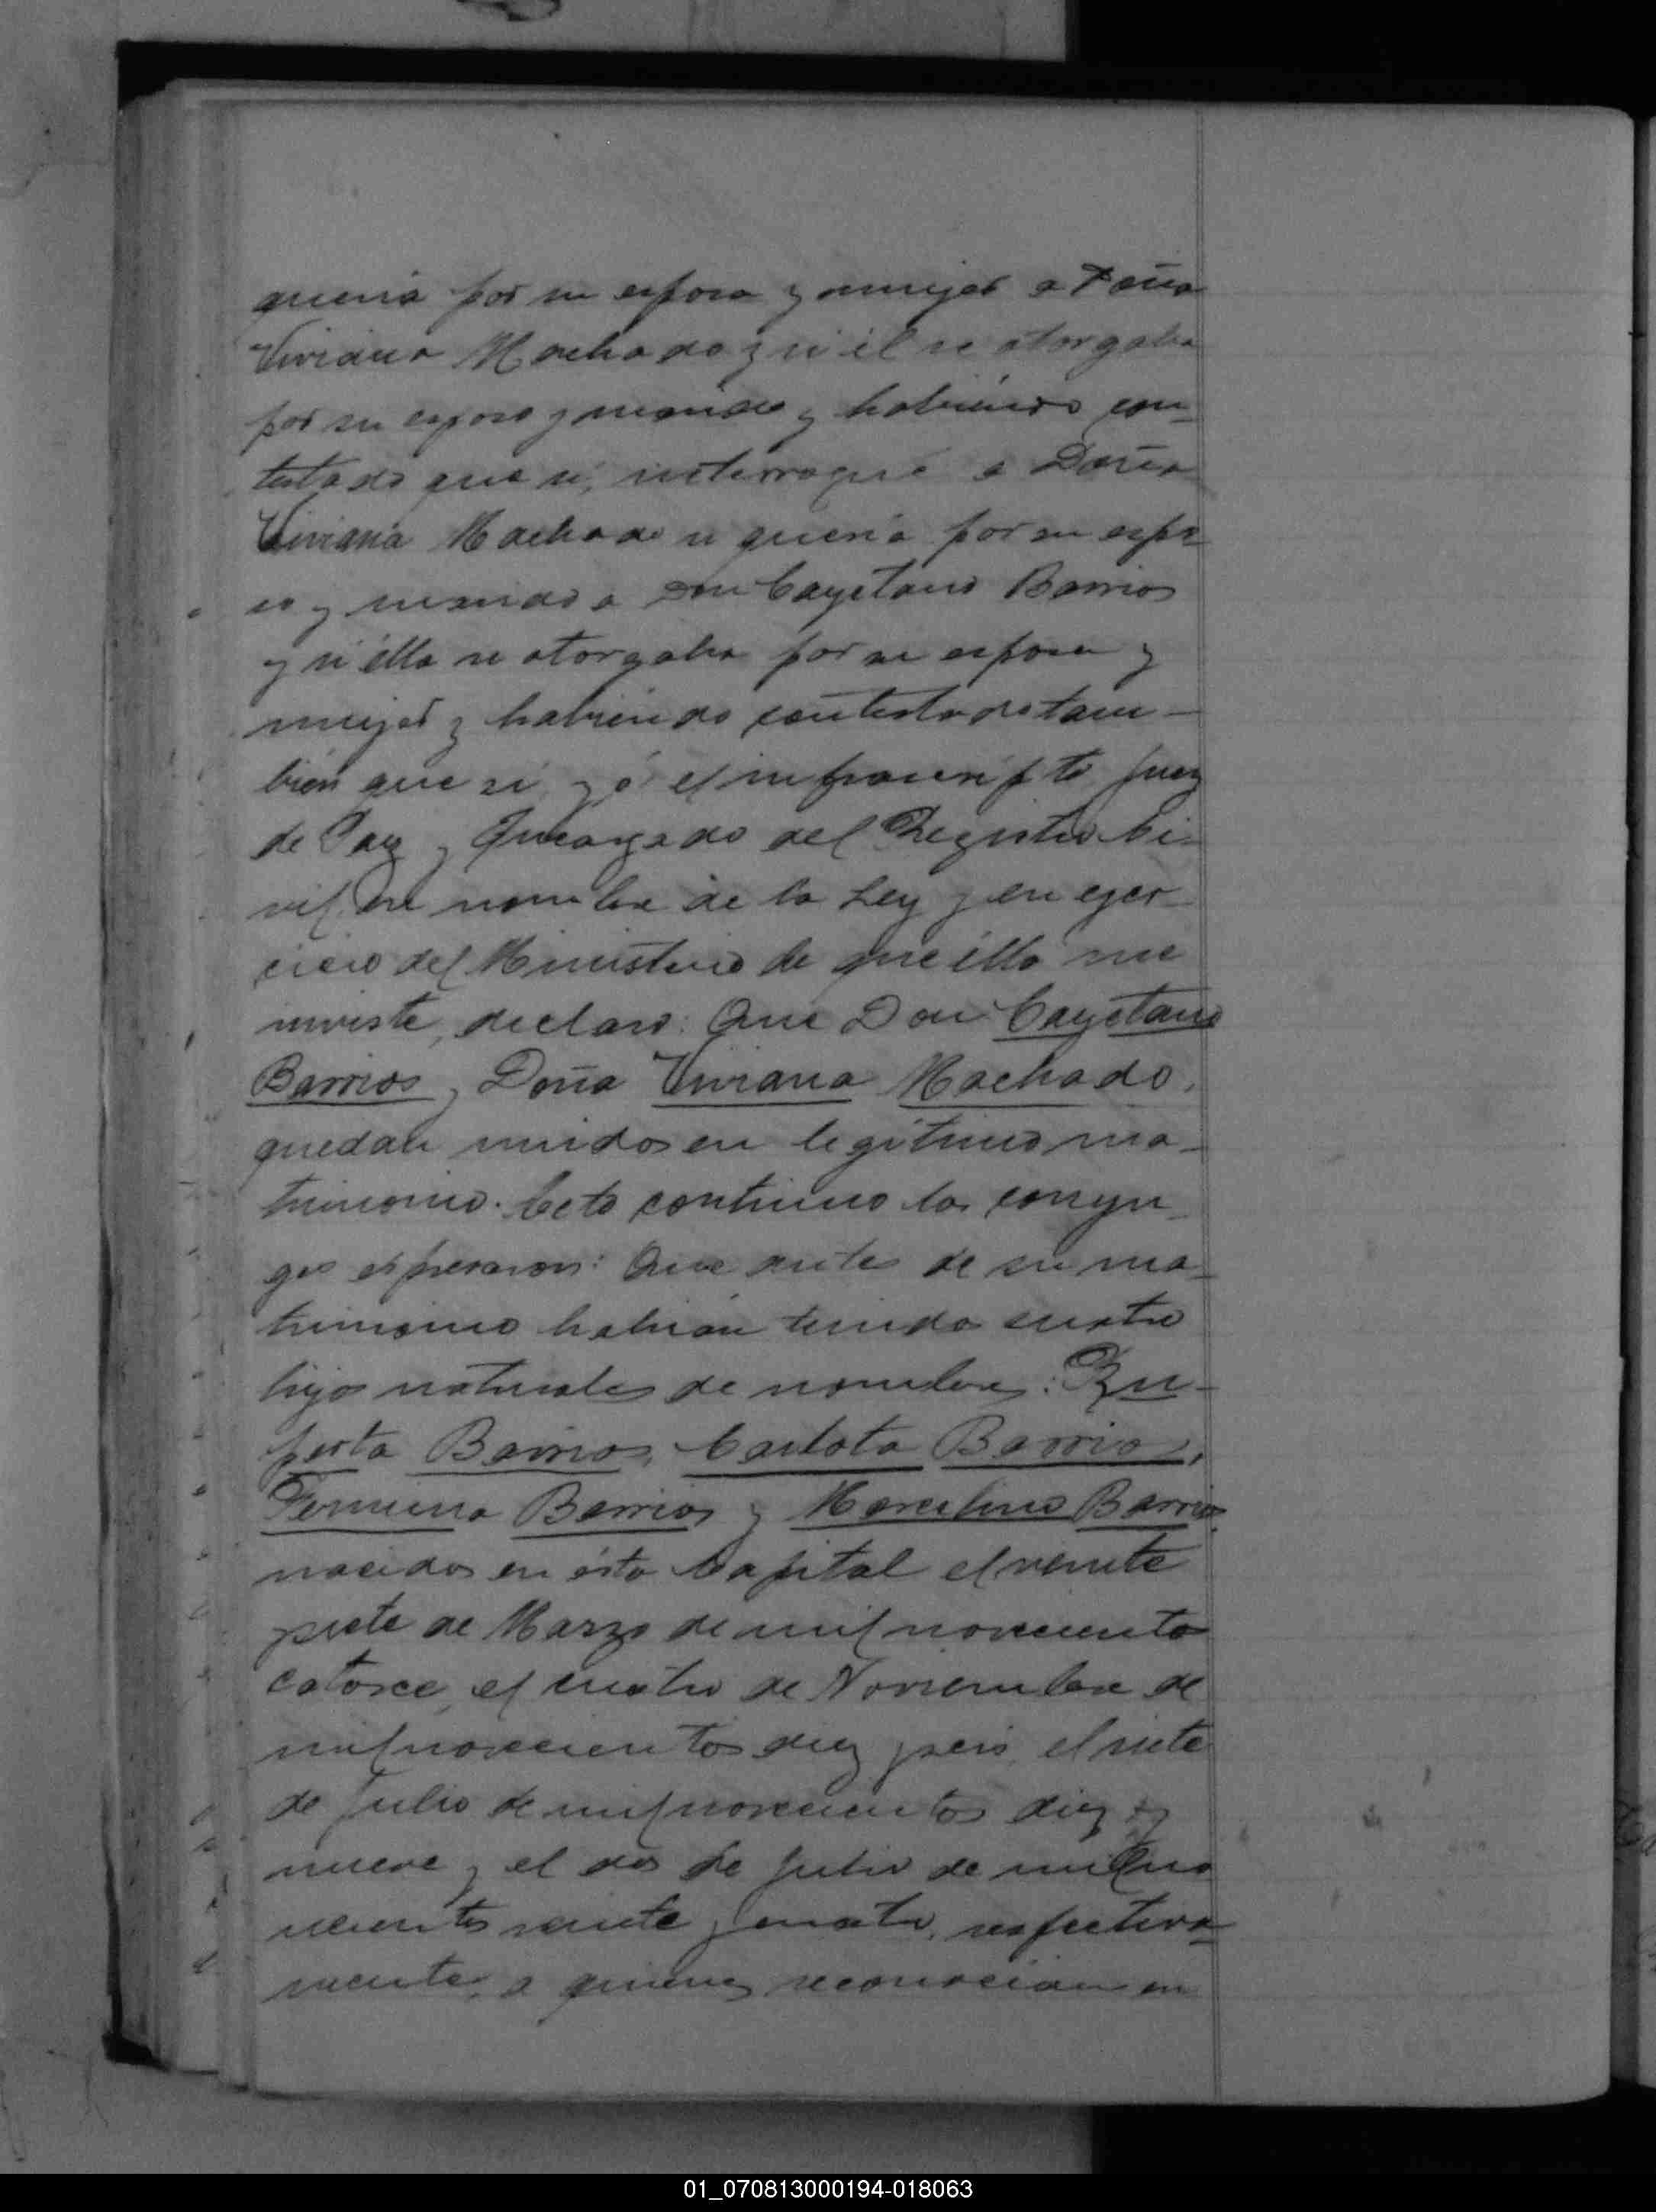 quería por su esposa y mujer a Doña
Viviana Machado y si él se otorgaba
por su esposo y marido y habiendo con-
testado que sí, interrogué a Doña
Viviana Machado si quería por su espo
so y marido a Don Cayetano Barrios
y si élla se otorgaba por su esposa y
mujer y habiendo contestado tam-
bién que sí yó el infrascripto Juez
de Paz y Encargado del Registro Ci-
vil, en nombre de la Ley y en ejer-
cicio del Ministerio de que élla me
inviste, declaro: Que Don Cayetano
Barrios y Doña Viviana Machado,
quedan unidos en legítimo ma-
trimonio. Acto continuo los conyu-
ges espresaron: Que antes de su ma-
trimonio habían tenido cuatro
hijos naturales de nombres: Ru-
perta Barrios, Carlota Barrios,
Fermina Barrios y Marcelino Barrios
nacidos en ésta Capital el veinte
y siete de Marzo de mil novecientos
catorce, el cuatro de Noviembre de
mil novecientos diez y seis, el siete
de Julio de mil novecientos diez y
nueve y el dos de Julio de mil no
vecientos veinte y cuatro, respectiva-
mente, a quienes reconocían en
01_070813000194-018063